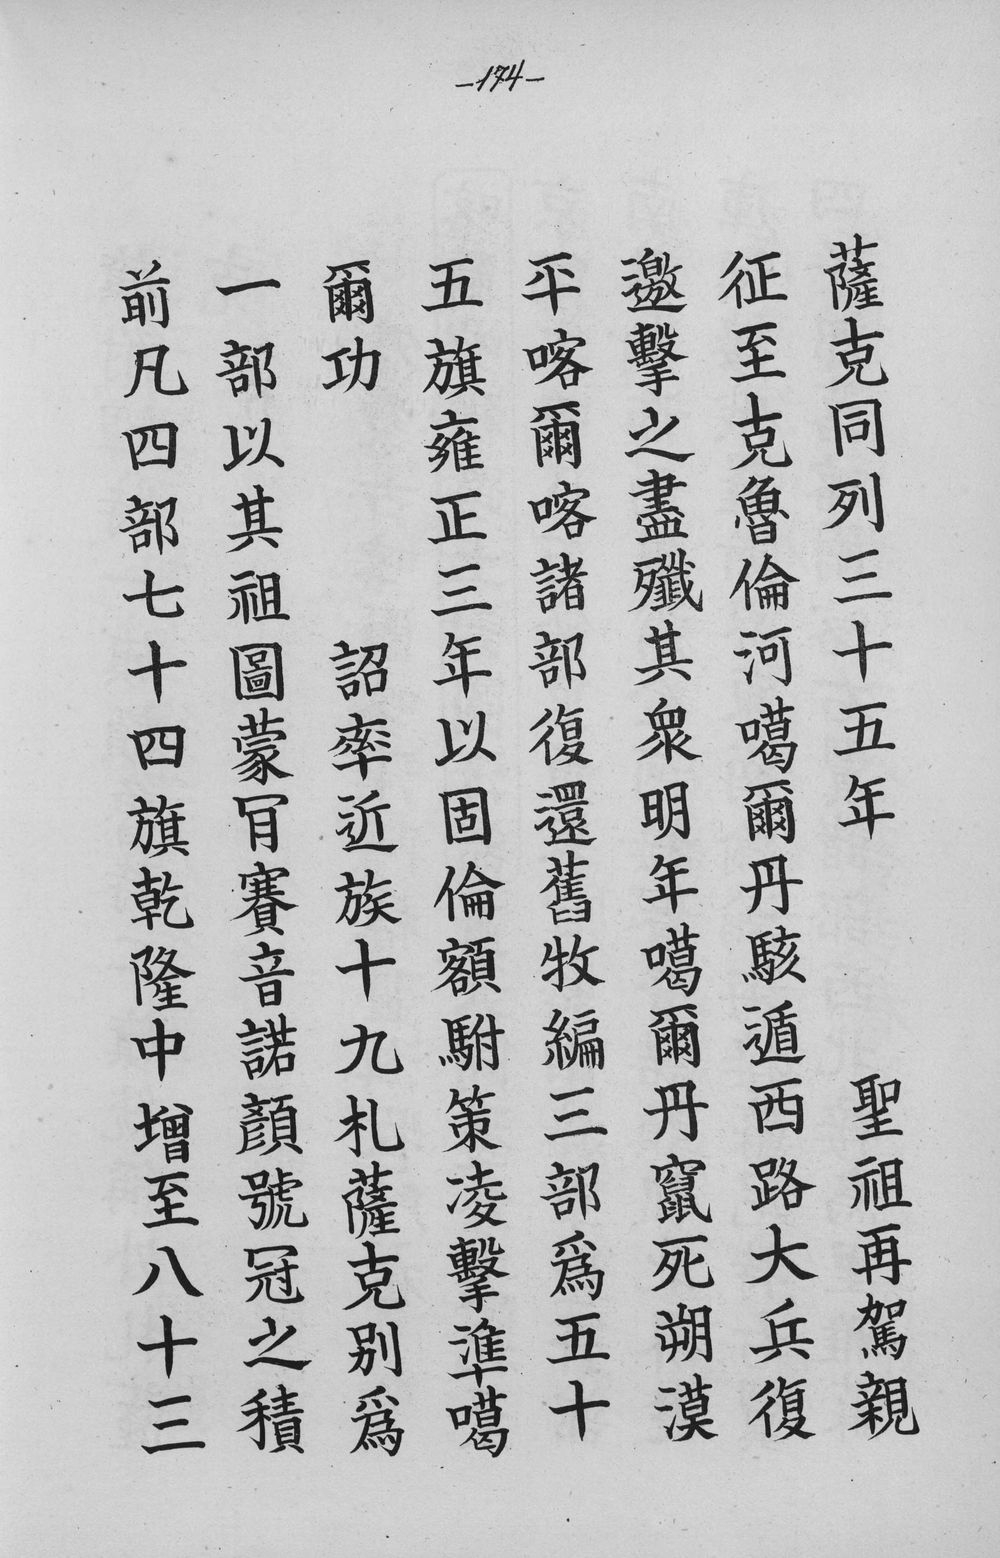 -174-
薩克同列三十五年　　　聖祖再駕親
征至克魯倫河噶爾丹駭遁西路大兵復
邀擊之盡殲其衆明年噶爾丹竄死朔漠
平喀爾喀諸部復還舊牧編三部爲五十
五旗雍正三年以固倫額駙策凌擊準噶
爾功　　　詔率近族十九札薩克别爲
一部以其祖圖蒙肎賽音諾顏號冠之積
前凡四部七十四旗乾隆中增至八十三